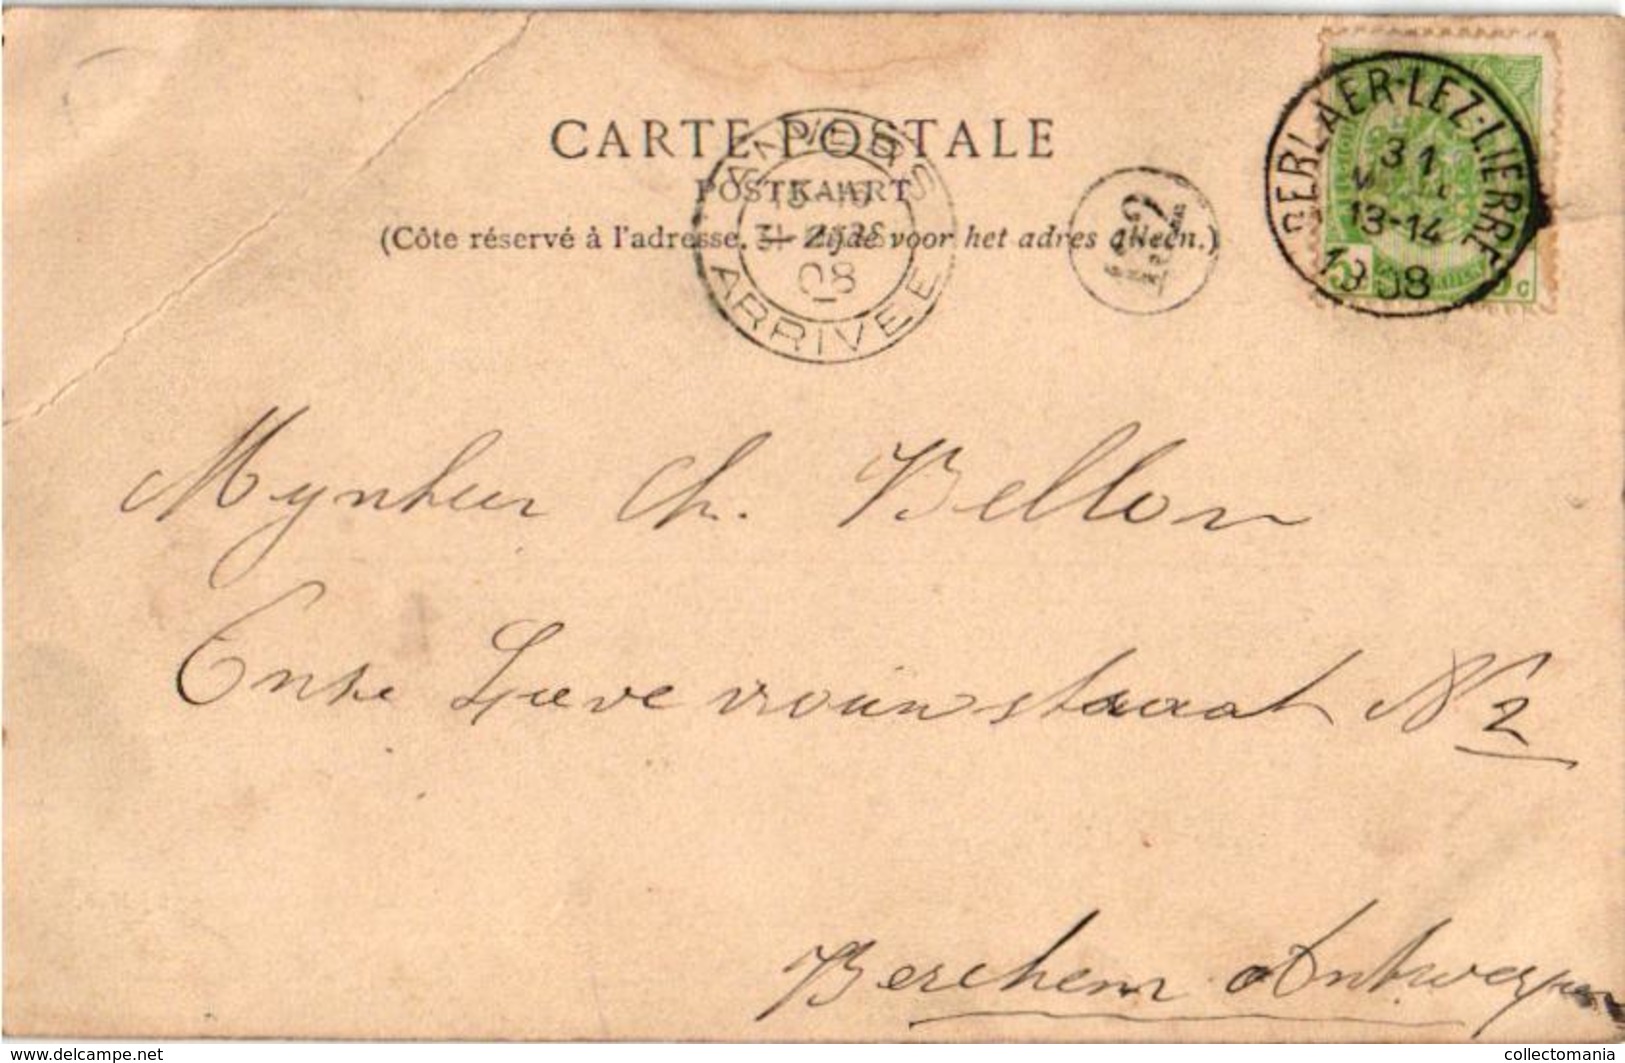 CARTE POSTALE
POSTKAART
(Côte réservé à l'adresse. — Zijde voor het adres alleen.)
BERLAER-LEZ-LIERRE
31
13-14
1908
5 5c
ANVERS
31 MARS
08
ARRIVEE
2
Mynheer Ch. Bellon
Onze Lieve vrouwstraat N 2
Berchem Antwerpen
www.delcampe.net
collectomania